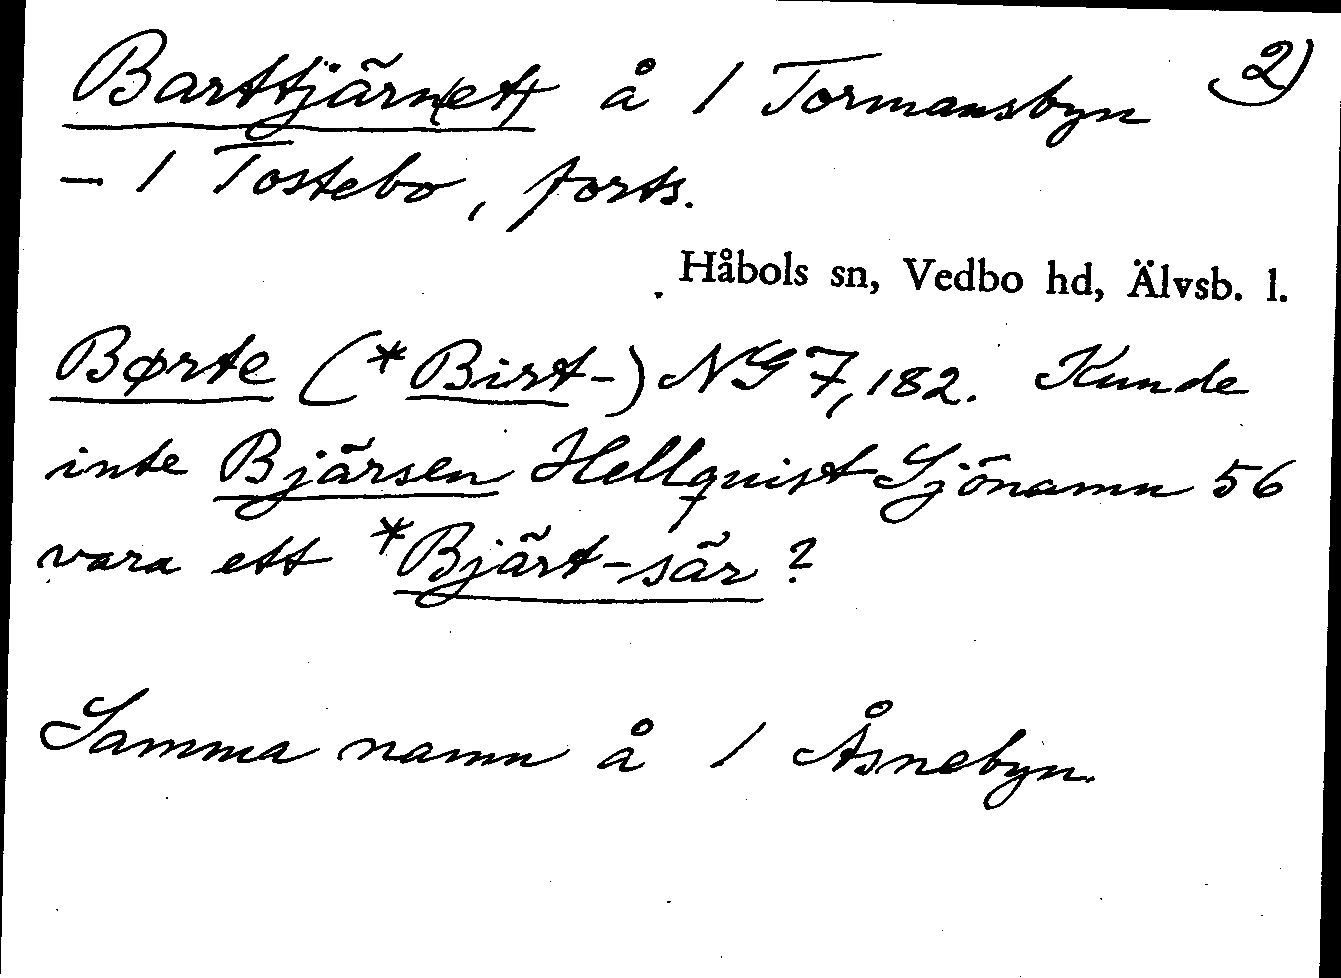 Barttjärn(et) å 1 Tormansbyn 2)
– 1 Tostebo, forts.
Håbols sn, Vedbo hd, Älvsb. l.
Børte (*Birt-) NG 7,182. Kunde
inte Bjärsen Hellquist Sjönamn 56
vara ett *Bjärt-sär?
Samma namn å 1 Åsnebyn.